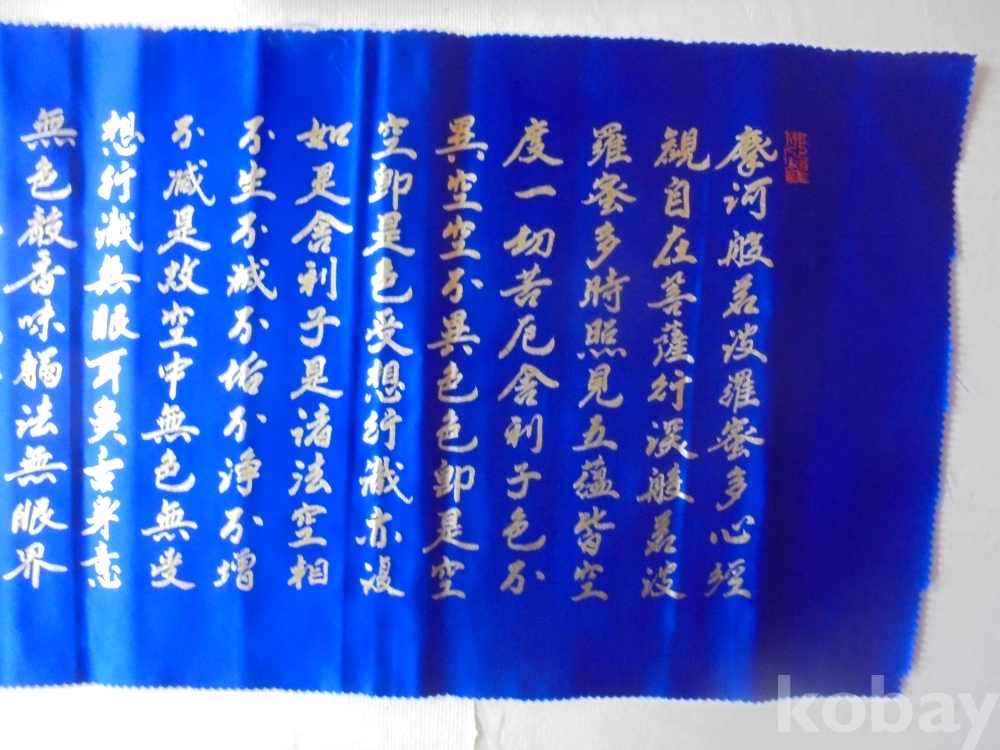 摩訶般若波羅蜜多心經
觀自在菩薩行深般若波
羅蜜多時照見五蘊皆空
度一切苦厄舍利子色不
異空空不異色色即是空
空即是色受想行識亦復
如是舍利子是諸法空相
不生不滅不垢不淨不增
不減是故空中無色無受
想行識無眼耳鼻舌身意
無色聲香味觸法無眼界
kobay